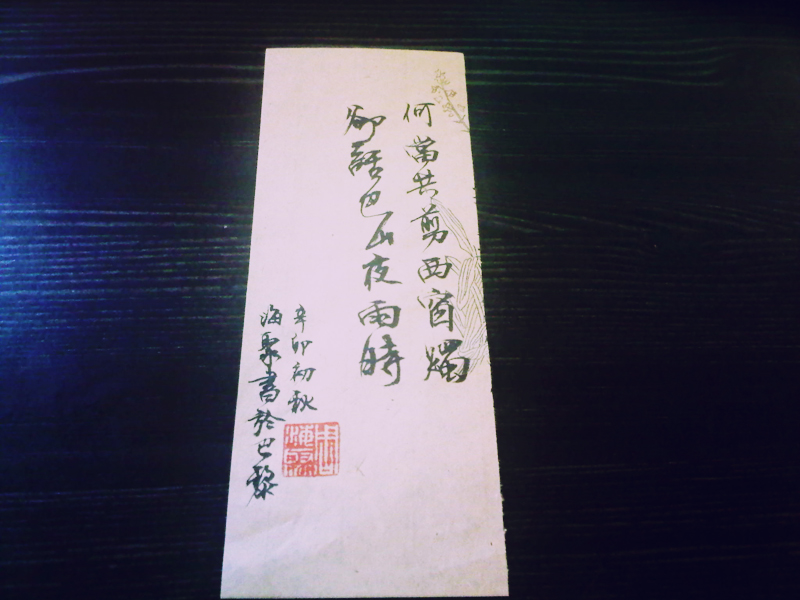 何當共剪西窗燭
卻話巴山夜雨時
辛卯初秋
海聚書於巴黎